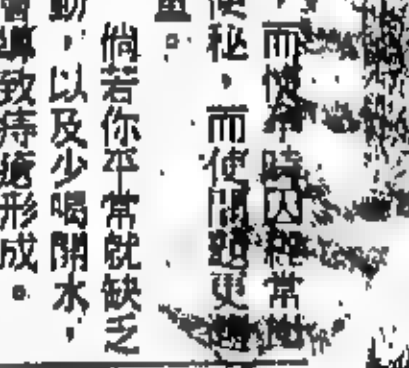 而時常
便秘，而使問題更
倘若你平常就缺乏
動，以及少喝開水，
會導致痔瘡形成。